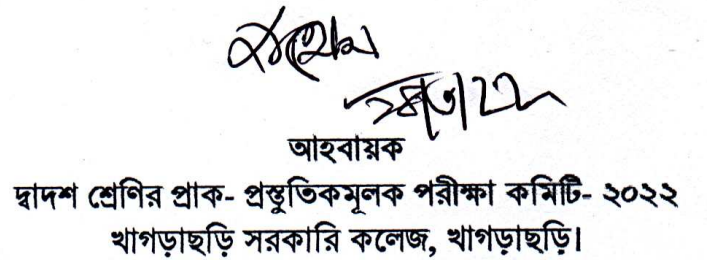 আহবায়ক
দ্বাদশ শ্রেণির প্রাক- প্রস্তুতিকমূলক পরীক্ষা কমিটি- ২০২২
খাগড়াছড়ি সরকারি কলেজ, খাগড়াছড়ি।